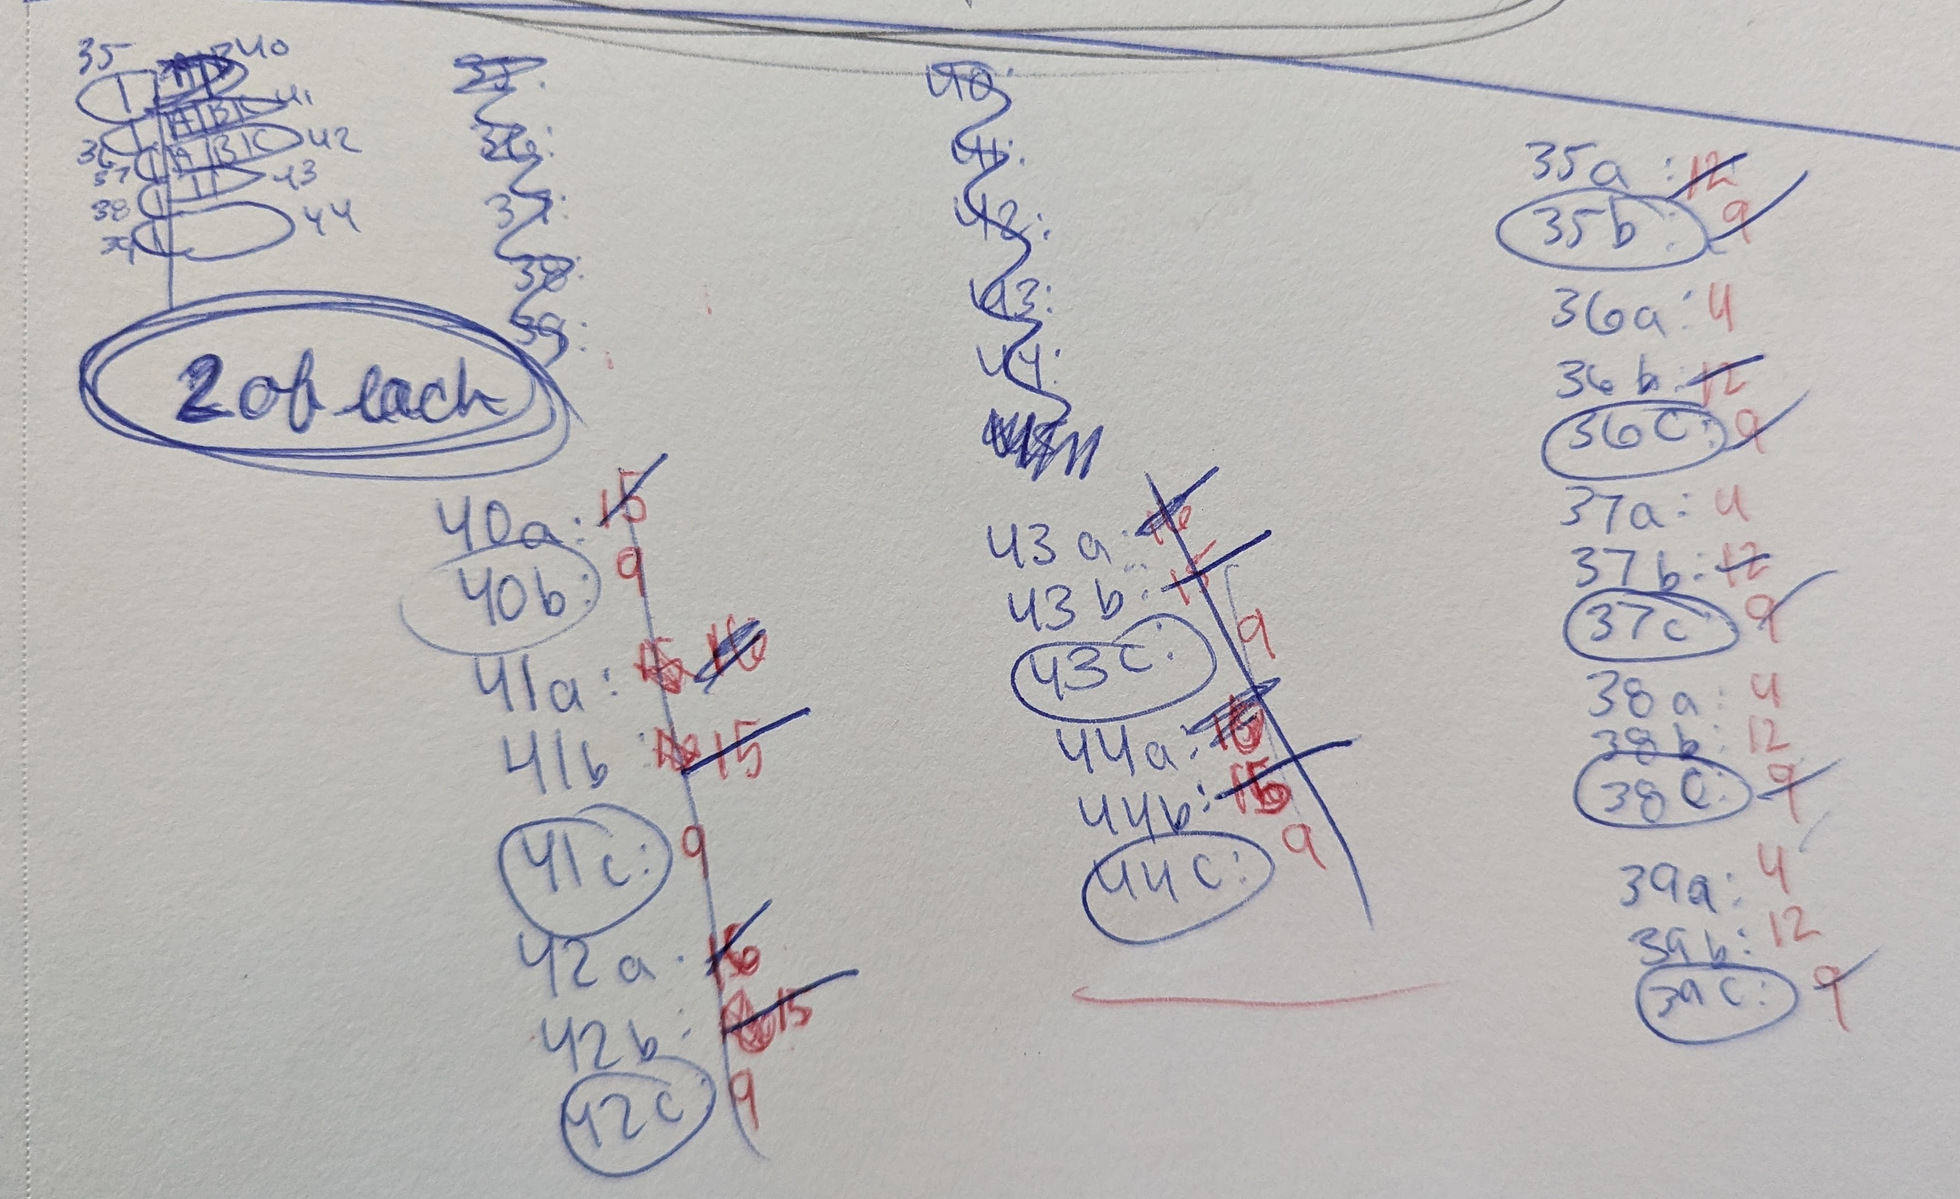 35 40
41
36 A B C 42
37 43
38 44
39
2 of each
37:
38:
39:
40:
41:
42:
43:
44:
40a: 15
40b: 9
41a: 16
41b: 15
41c: 9
42a: 16
42b: 15
42c 9
43a: 16
43b: 15
43c: 9
44a: 16
44b: 15
44c: 9
35a: 12
35b: 9
36a: 4
36b: 12
36c: 9
37a: 4
37b: 12
37c: 9
38a: 4
38b: 12
38c: 9
39a: 4
39b: 12
39c: 9